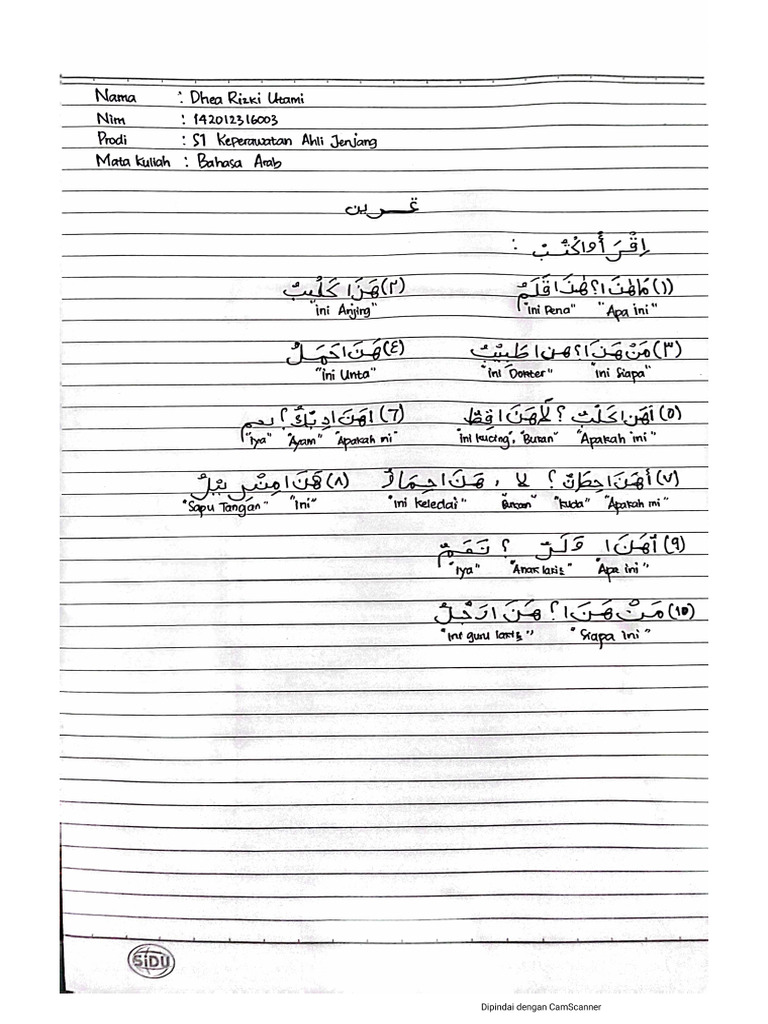 Nama : Dhea Rizki Utami
Nim : 142012316003
Prodi : S1 Keperawatan Ahli Jenjang
Mata kuliah : Bahasa Arab
تمرين
اِقْرَأْ وَاكْتُبْ :
(١) مَا هٰذَا؟ هٰذَا قَلَمٌ (٢) هَذَا كَلْبٌ
"Apa ini" "ini Pena" "ini Anjing"
(٣) مَنْ هَذَا؟ هذا طَبِيْبٌ (٤) هَذَا جَمَلٌ
"ini siapa" "ini Dokter" "ini Unta"
(٥) أهَذَا كَلْبٌ؟ لَا هَذَا قِطٌّ (6) أهَذَا دِيْكٌ؟ نعم
"Apakah ini" "Bukan" "ini kucing" "Apakah ini" "Ayam" "Iya"
(٧) أهَذَا حِصَانٌ؟ لا ، هَذَا حِمَارٌ (٨) هَذَا مِنْدِيْلٌ
"Apakah ini" "kuda" "Bukan" "ini keledai" "Ini" "Sapu Tangan"
(9) أهَذَا وَلَدٌ ؟ نَعَمْ
"Apa ini" "Anak laki2" "Iya"
(10) مَنْ هَذَا؟ هَذَا رَجُلٌ
"Siapa ini" "ini guru laki2"
SiDU
Dipindai dengan CamScanner